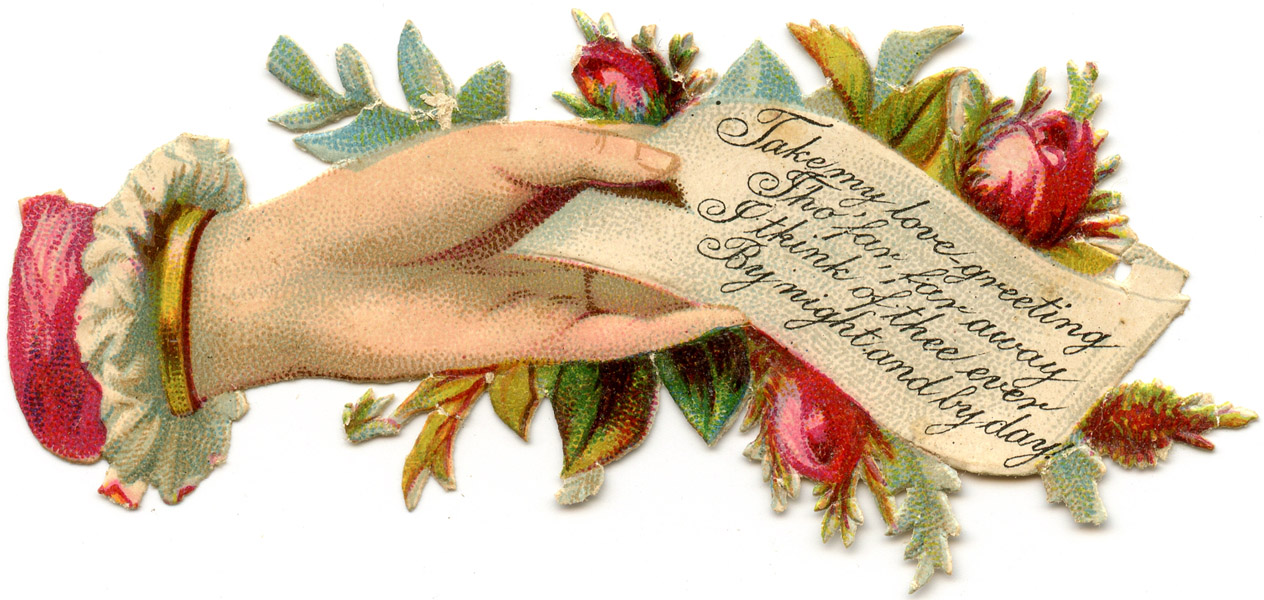 Take my love-greeting
Tho' far, far away
I think of thee ever
By night and by day.